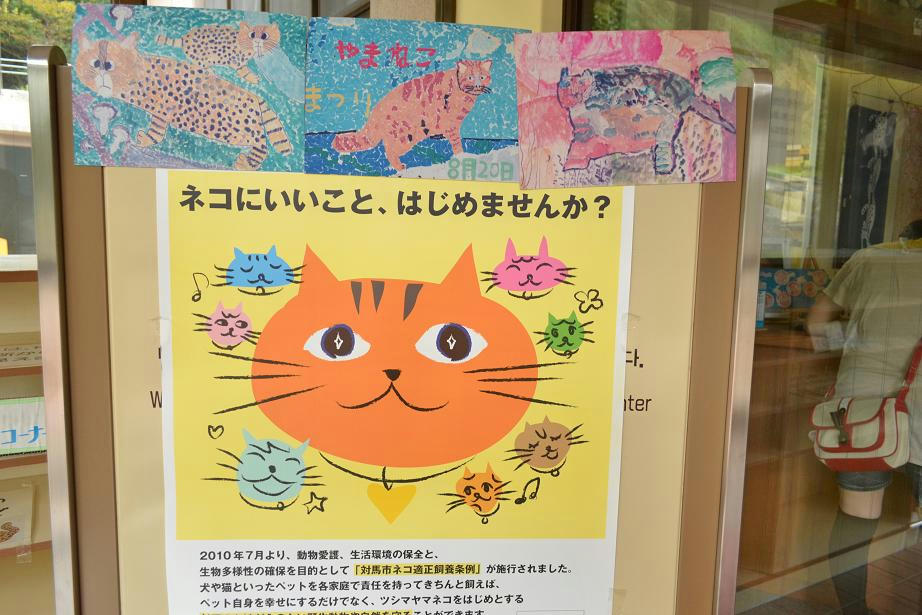 やまねこ
まつり
8月20日
ネコにいいこと、はじめませんか？
다.
W
nter
コーナー
2010年7月より、動物愛護、生活環境の保全と、
生物多様性の確保を目的として「対馬市ネコ適正飼養条例」が施行されました。
犬や猫といったペットを各家庭で責任を持ってきちんと飼えば、
ペット自身を幸せにするだけでなく、ツシマヤマネコをはじめとする